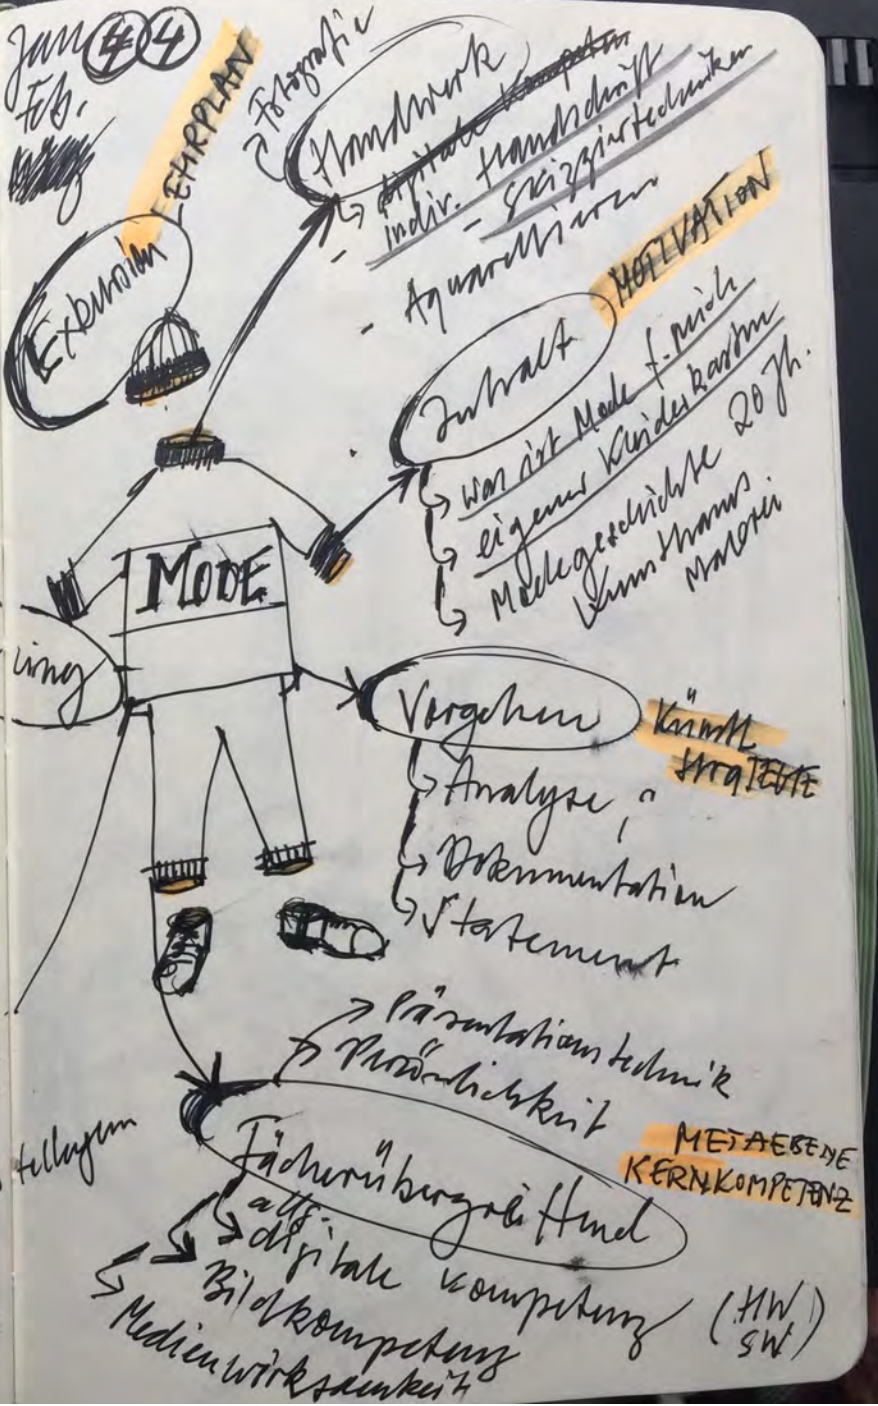 Jan ④ ④
Feb.
LEHRPLAN
Exkursion
Fotografie
Handwerk
digitale Kompeten
indiv. Handschrift
- Skizziertechniken
- Aquarellieren
MOTIVATION
Inhalt
was ist Mode f. mich
eigener Kleiderkasten
Modegeschichte 20 Jh.
Kunsthaus
Malerei
MODE
ung
Vorgehen
Künstl
StraTEGIE
Analyse
Dokumentation
Statement
Präsentationstechnik
Persönlichkeit
METAEBENE
KERNKOMPETENZ
Fächerübergreifend
allg.
digitale Kompetenz (HW
SW)
Bildkompetenz
Medienwirksamkeit